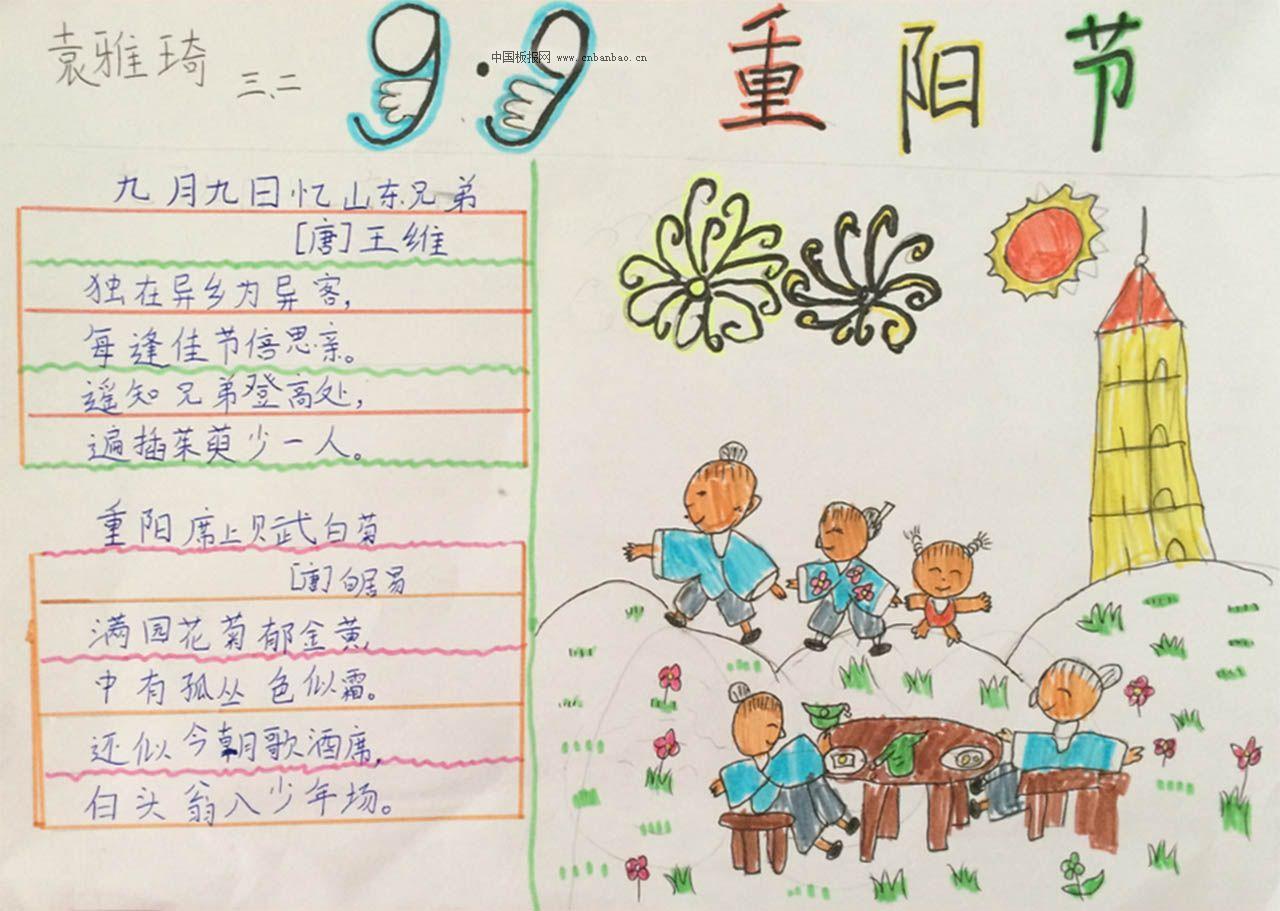 袁雅琦 三、二
9.9 重阳节
中国板报网 www.cnbanbao.cn
九月九日忆山东兄弟
[唐]王维
独在异乡为异客,
每逢佳节倍思亲。
遥知兄弟登高处,
遍插茱萸少一人。
重阳席上赋白菊
[唐]白居易
满园花菊郁金黄,
中有孤丛色似霜。
还似今朝歌酒席,
白头翁入少年场。